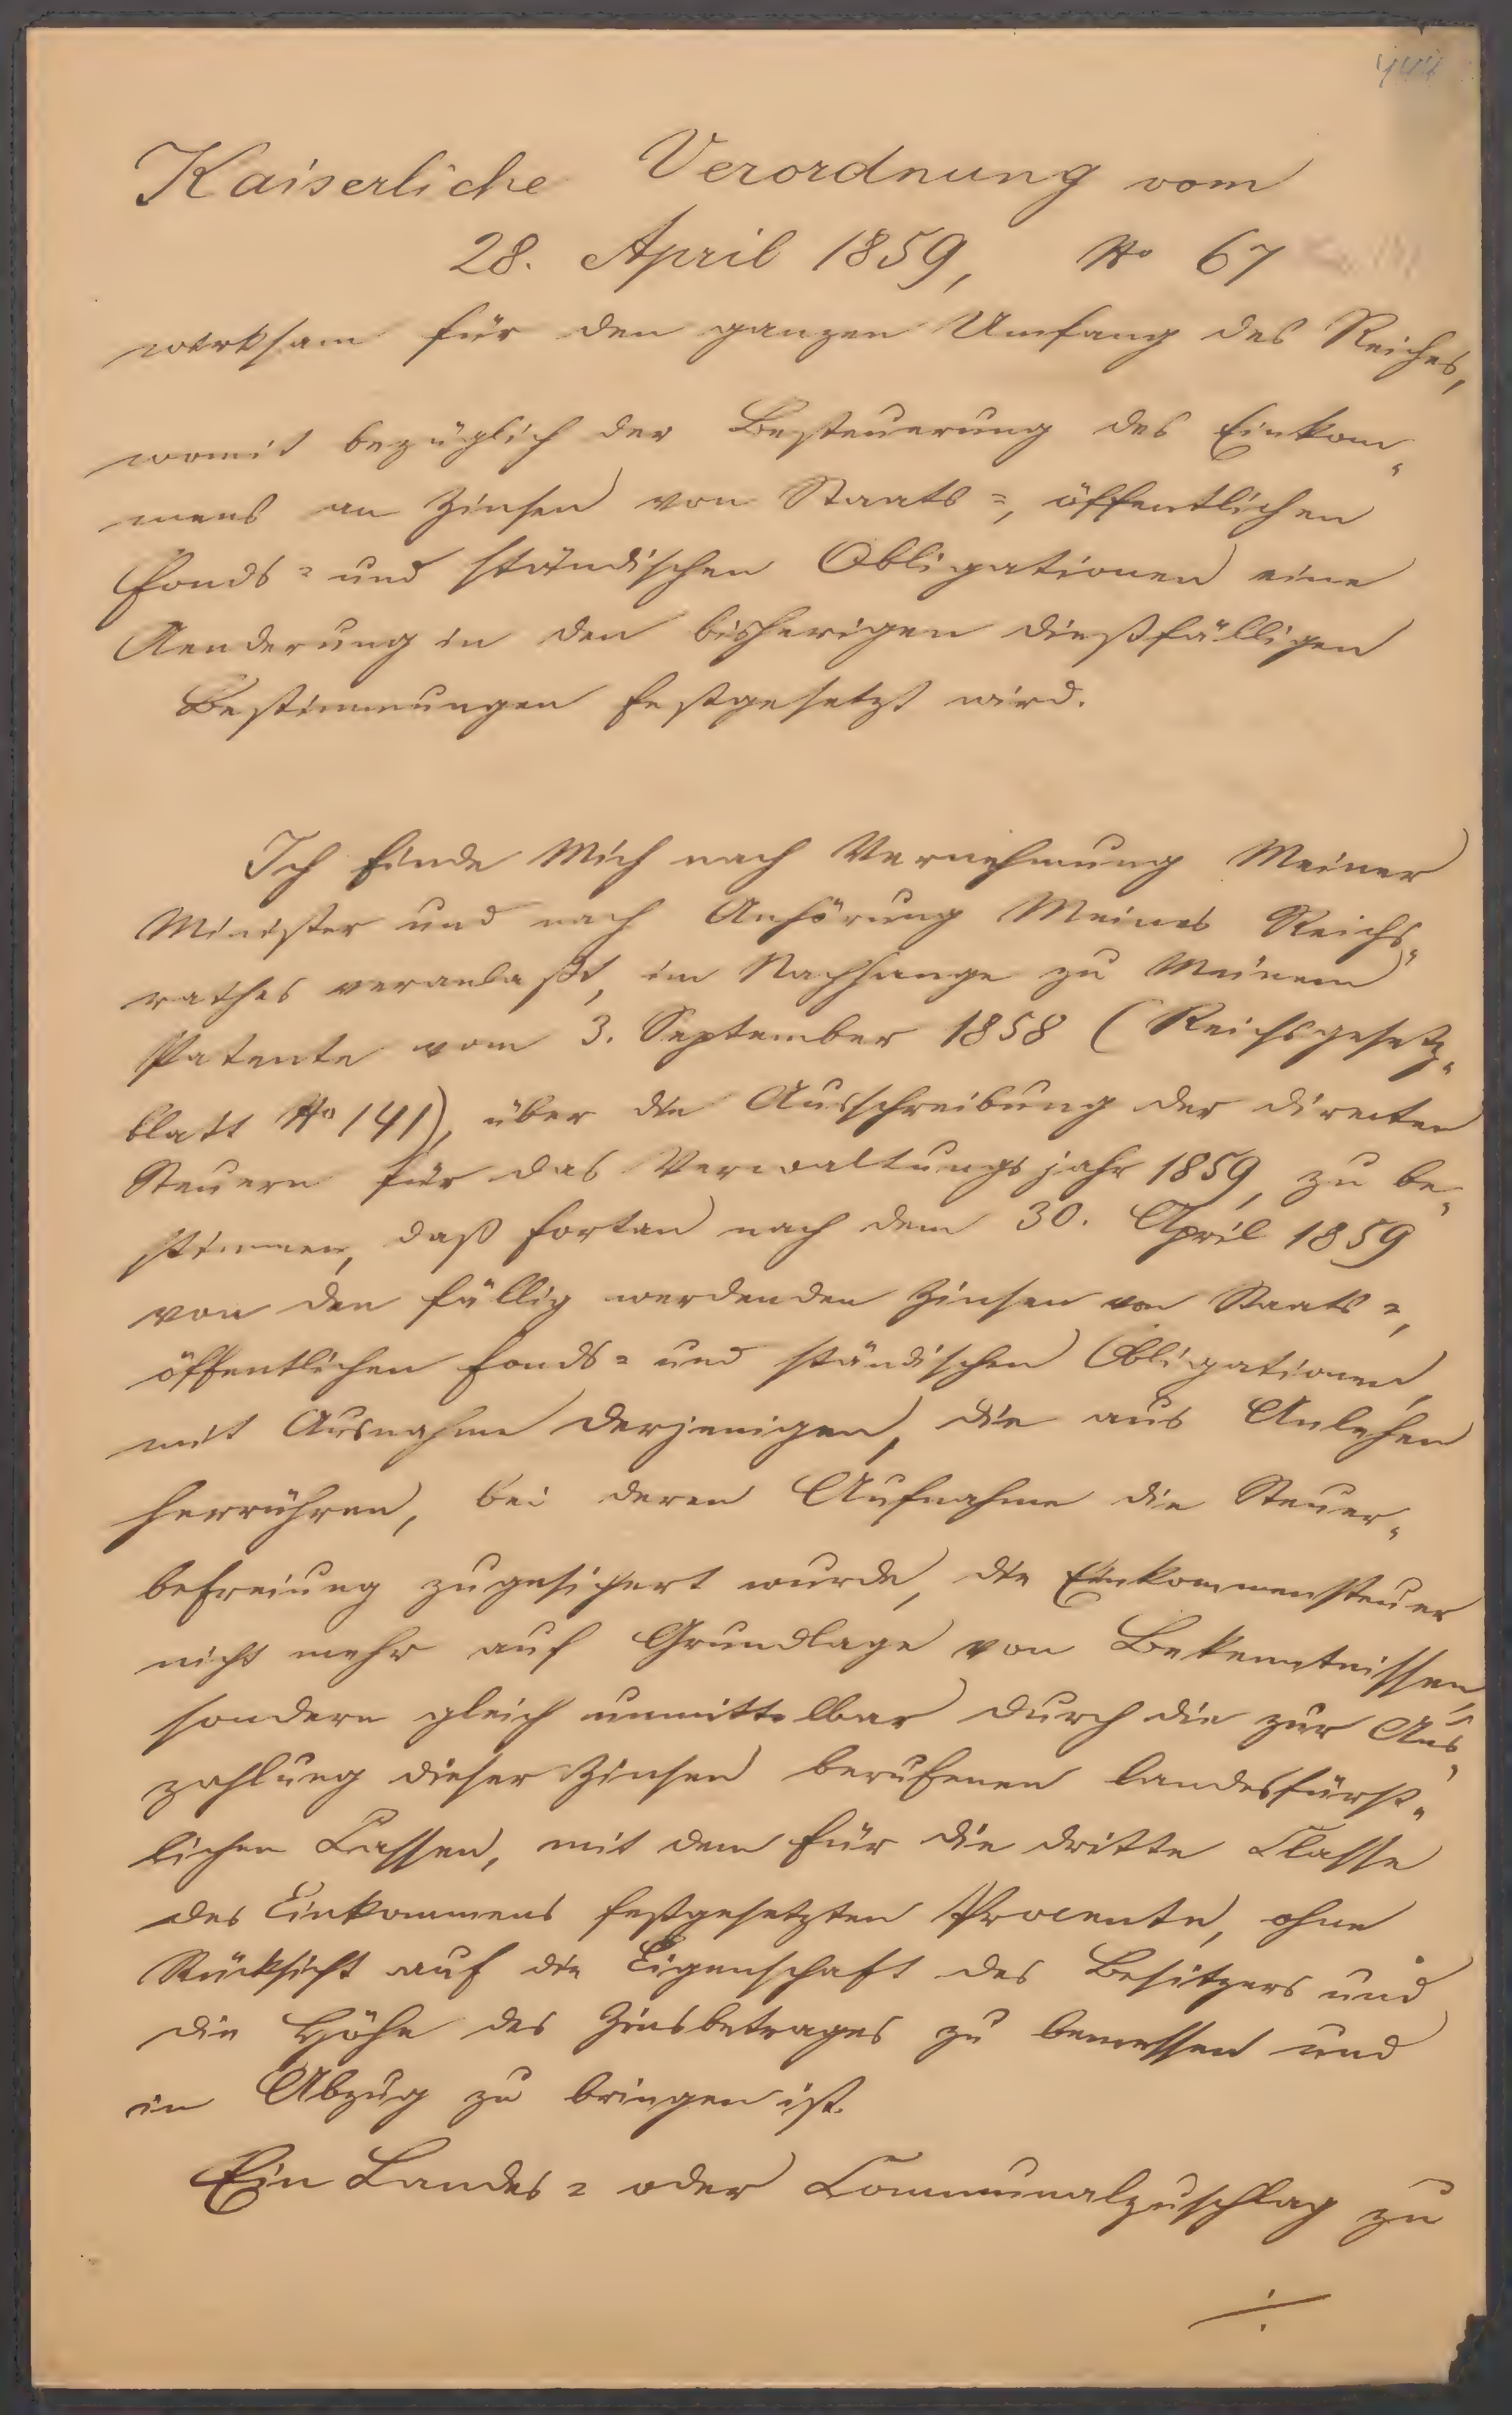 Kaiserliche Verordnung vom
28. April 1859, No 67
wirksam für den ganzen Umfang des Reiches,
womit bezüglich der Besteuerung des Einkom„
mens an Zinsen von Staats=, öffentlichen
Fonds= und ständischen Obligationen eine
Aenderung in den bisherigen dießfälligen
Bestimmungen festgesetzt wird.
Ich finde Mich nach Vernehmung Meiner
Minister und nach Anhörung Meines Reichs„
rathes veranlaßt, im Nachhange zu Meinem
Patente vom 3. September 1858 (Reichsgesetz„
blatt No 141), über die Ausschreibung der directen
Steuern für das Verwaltungsjahr 1859, zu be„
stimmen, daß fortan nach dem 30. April 1859
von den fällig werdenden Zinsen von Staats=,
öffentlichen Fonds= und ständischen Obligationen,
mit Ausnahme derjenigen, die aus Anlehen
herrühren, bei deren Aufnahme die Steuer„
befreiung zugesichert wurde, die Einkommensteuer
nicht mehr auf Grundlage von Bekenntnissen,
sondern gleich unmittelbar durch die zur Aus„
zahlung dieser Zinsen berufenen landesfürst„
lichen Cassen, mit dem für die dritte Classe
des Einkommens festgesetzten Procente, ohne
Rücksicht auf die Eigenschaft des Besitzers und
die Höhe des Zinsbetrages zu bemessen und
in Abzug zu bringen ist.
Ein Landes= oder Communalzuschlag zu
./.